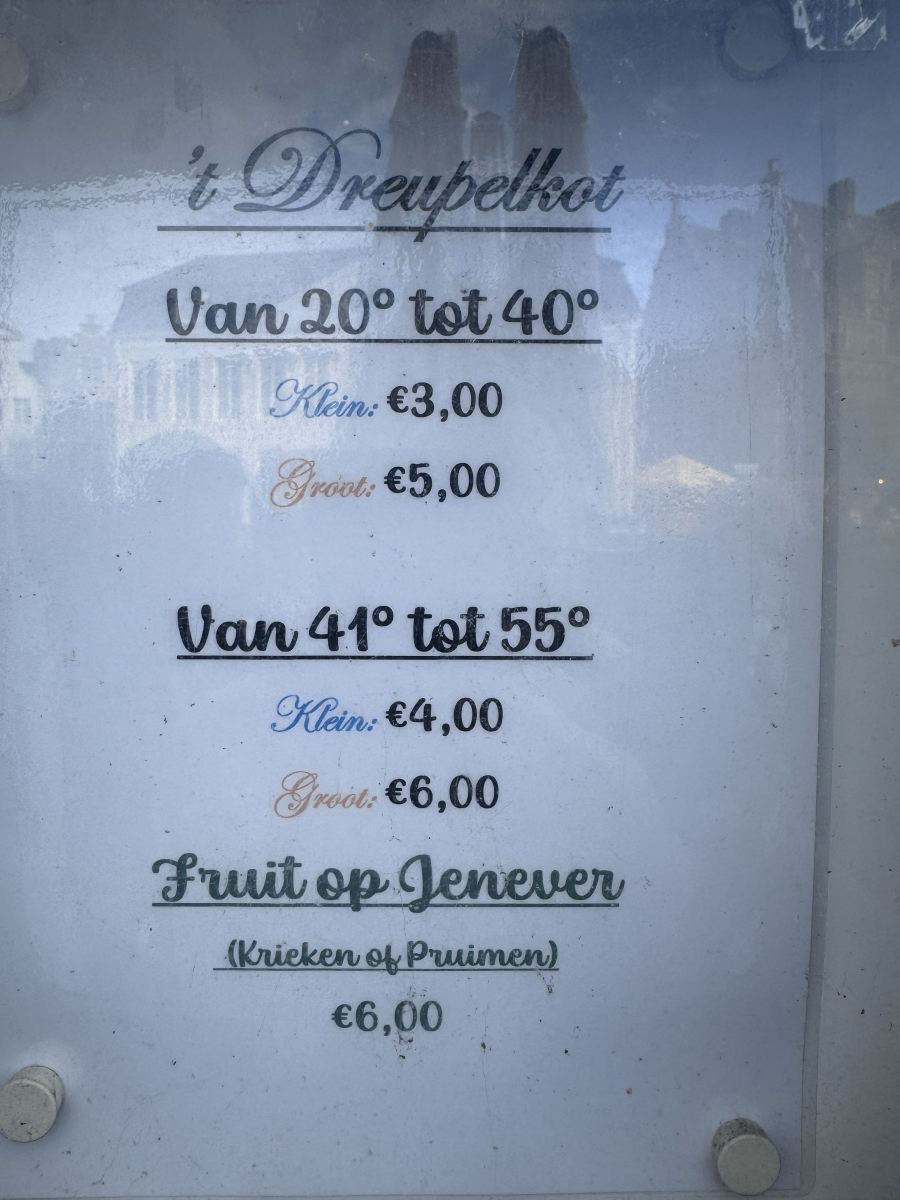 't Dreupelkot
Van 20° tot 40°
Klein: €3,00
Groot: €5,00
Van 41° tot 55°
Klein: €4,00
Groot: €6,00
Fruit op Jenever
(Krieken of Pruimen)
€6,00